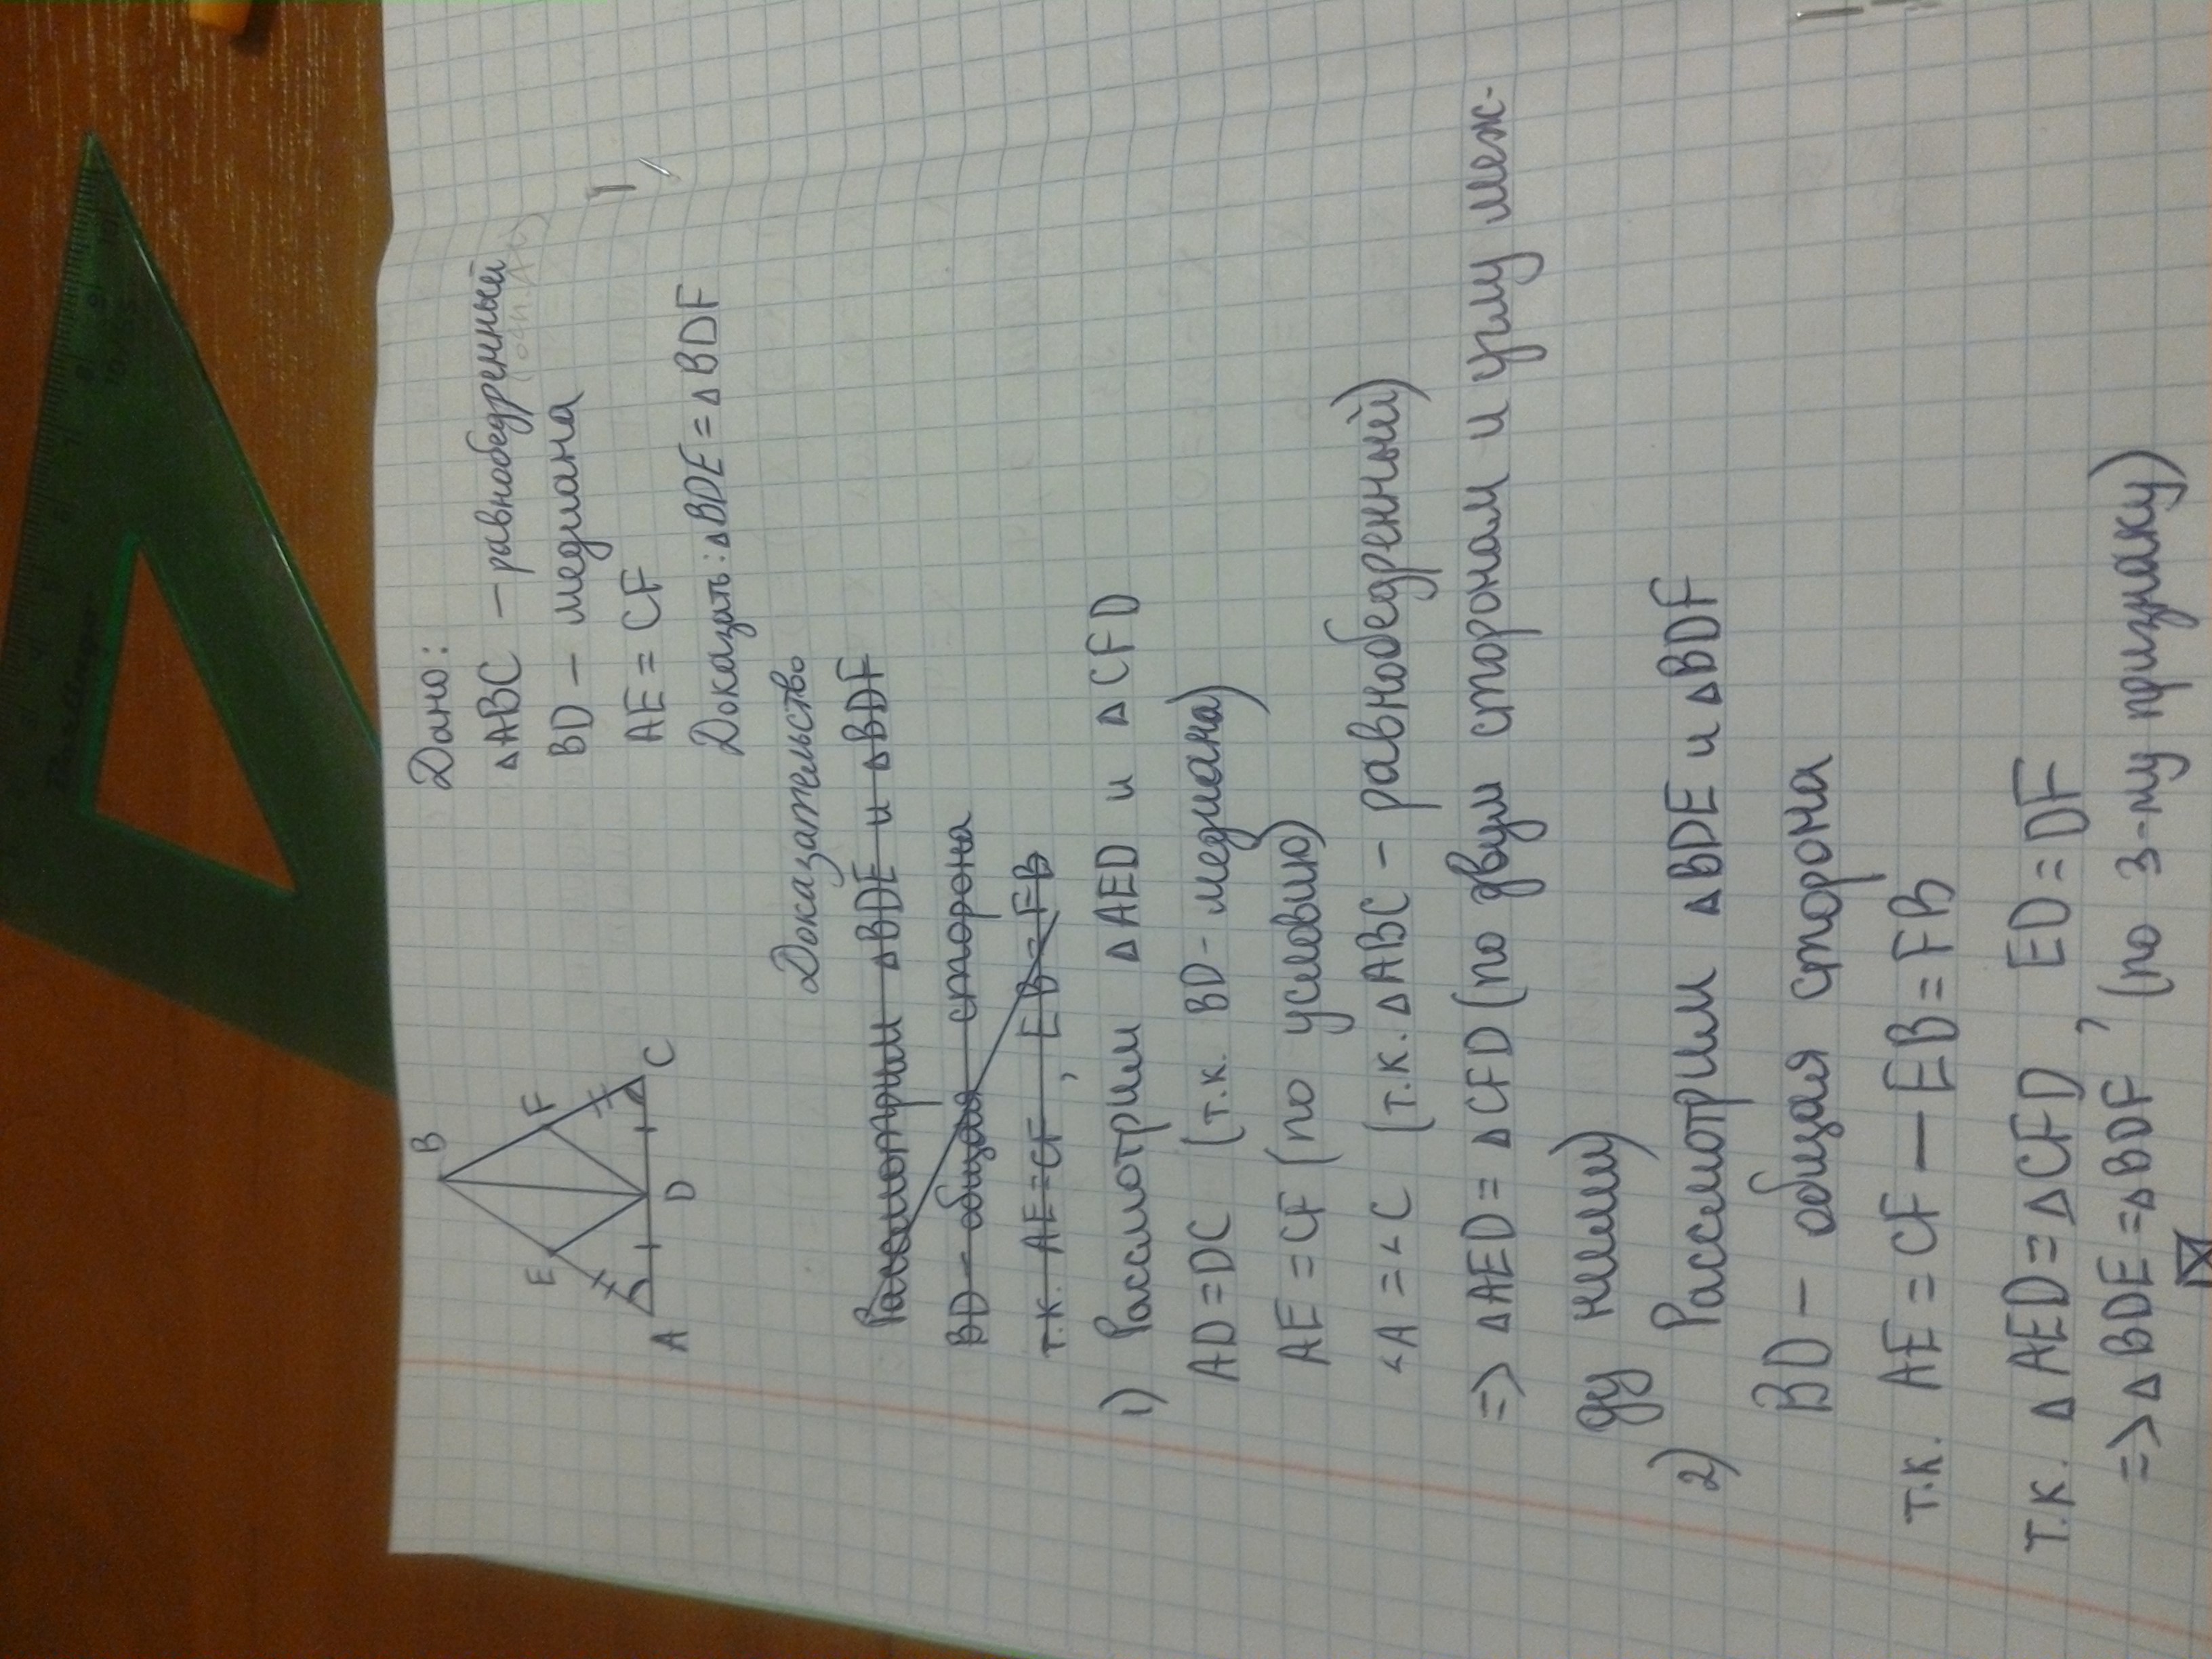 B
E
F
A
D
C
Дано:
△ABC – равнобедренный
BD – медиана
AE = CF
Доказать: △BDE = △BDF
Доказательство
Рассмотрим △BDE и △BDF
BD – общая сторона
т.к. AE = CF, EB = FB
1) Рассмотрим △AED и △CFD
AD = DC (т.к. BD - медиана)
AE = CF (по условию)
∠A = ∠C (т.к. △ABC – равнобедренный)
=> △AED = △CFD (по двум сторонам и углу меж-
ду ними)
2) Рассмотрим △BDE и △BDF
BD – общая сторона
т.к. AE = CF — EB = FB
т.к. △AED = △CFD, ED = DF
=> △BDE = △BDF (по 3-му признаку)